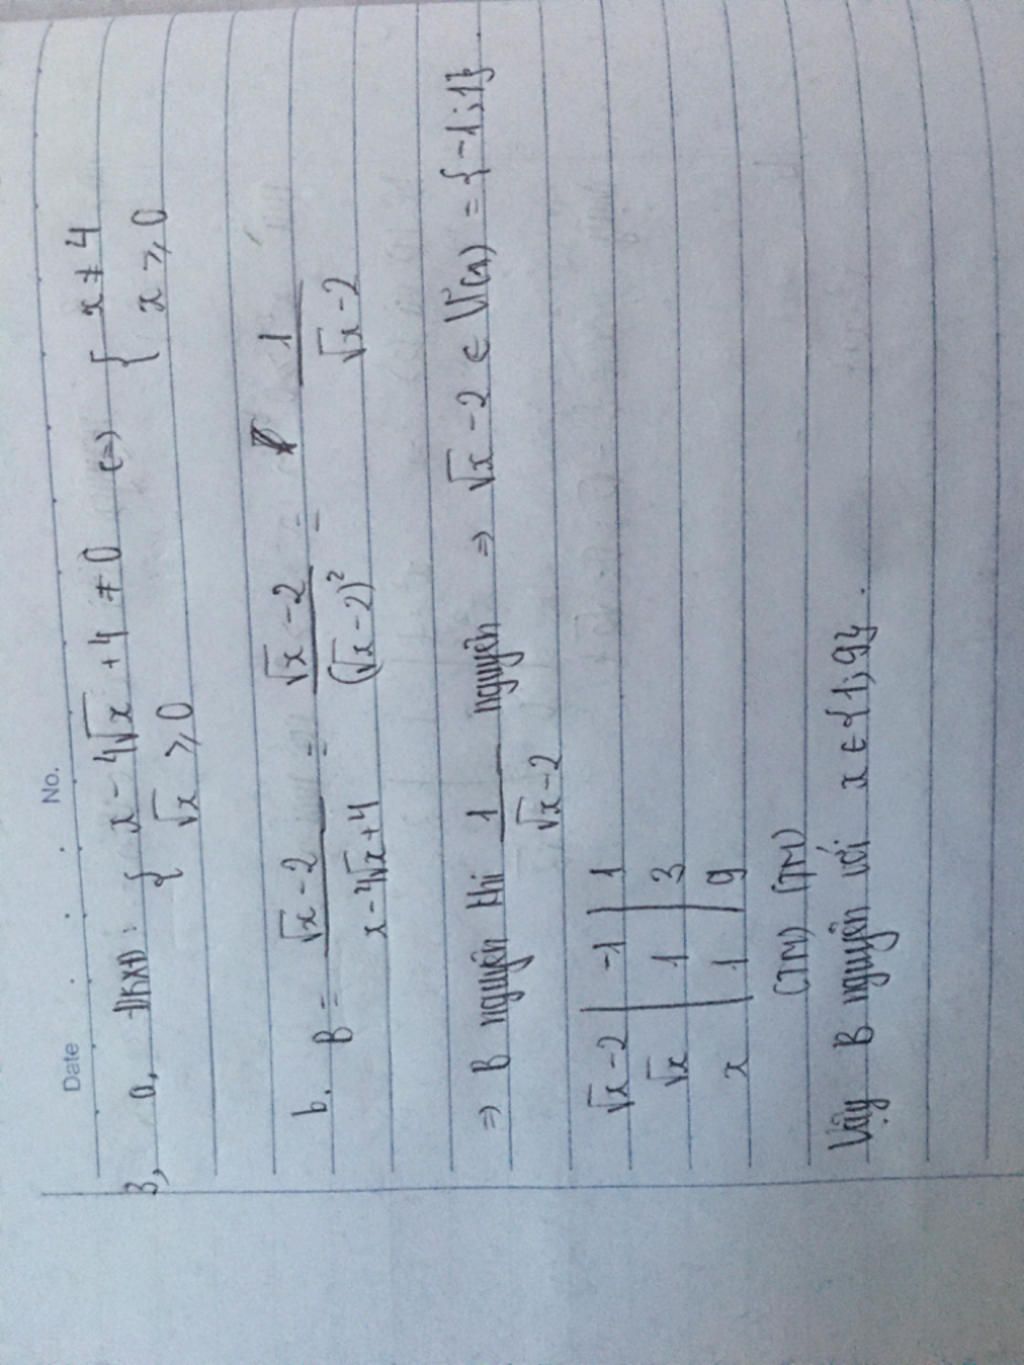 Date No.
3, a, ĐKXĐ: { x - 4√x + 4 ≠ 0 (=) { x ≠ 4
√x ≥ 0 x ≥ 0
b. B = (√x - 2)/(x - 4√x + 4) = (√x - 2)/(√x - 2)² = 1/(√x - 2)
=> B nguyên thì 1/(√x - 2) nguyên => √x - 2 ∈ Ư(1) = {-1; 1}
√x - 2 | -1 | 1
√x | 1 | 3
x | 1 | 9
(TM) (TM)
Vậy B nguyên với x ∈ {1; 9}.